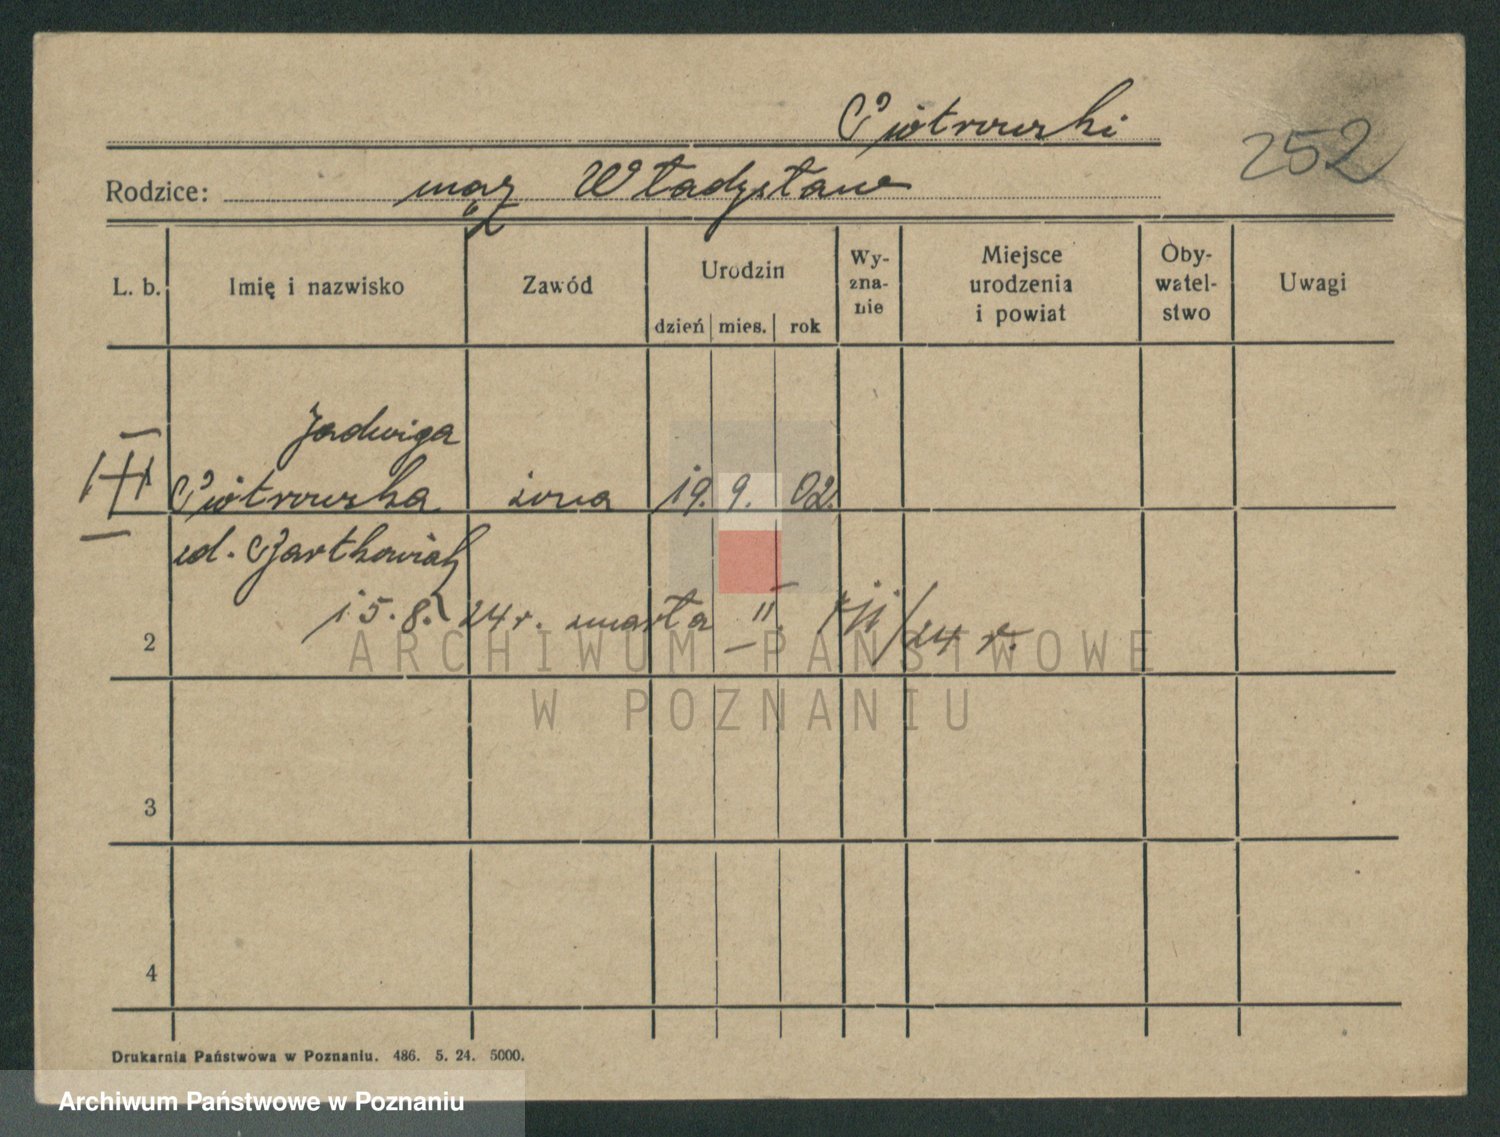 Piotrowski
252
Rodzice: mąż Władysław
L. b. Imię i nazwisko Zawód Urodzin dzień mies. rok Wy-zna-nie Miejsce urodzenia i powiat Oby-watel-stwo Uwagi
Jadwiga
Piotrowska żona 19. 9. 02.
ud. Czartkowiak
15. 8. 24 r. umarła II. /24 r.
2
ARCHIWUM PAŃSTWOWE
W POZNANIU
3
4
Drukarnia Państwowa w Poznaniu. 486. 5. 24. 5000.
Archiwum Państwowe w Poznaniu